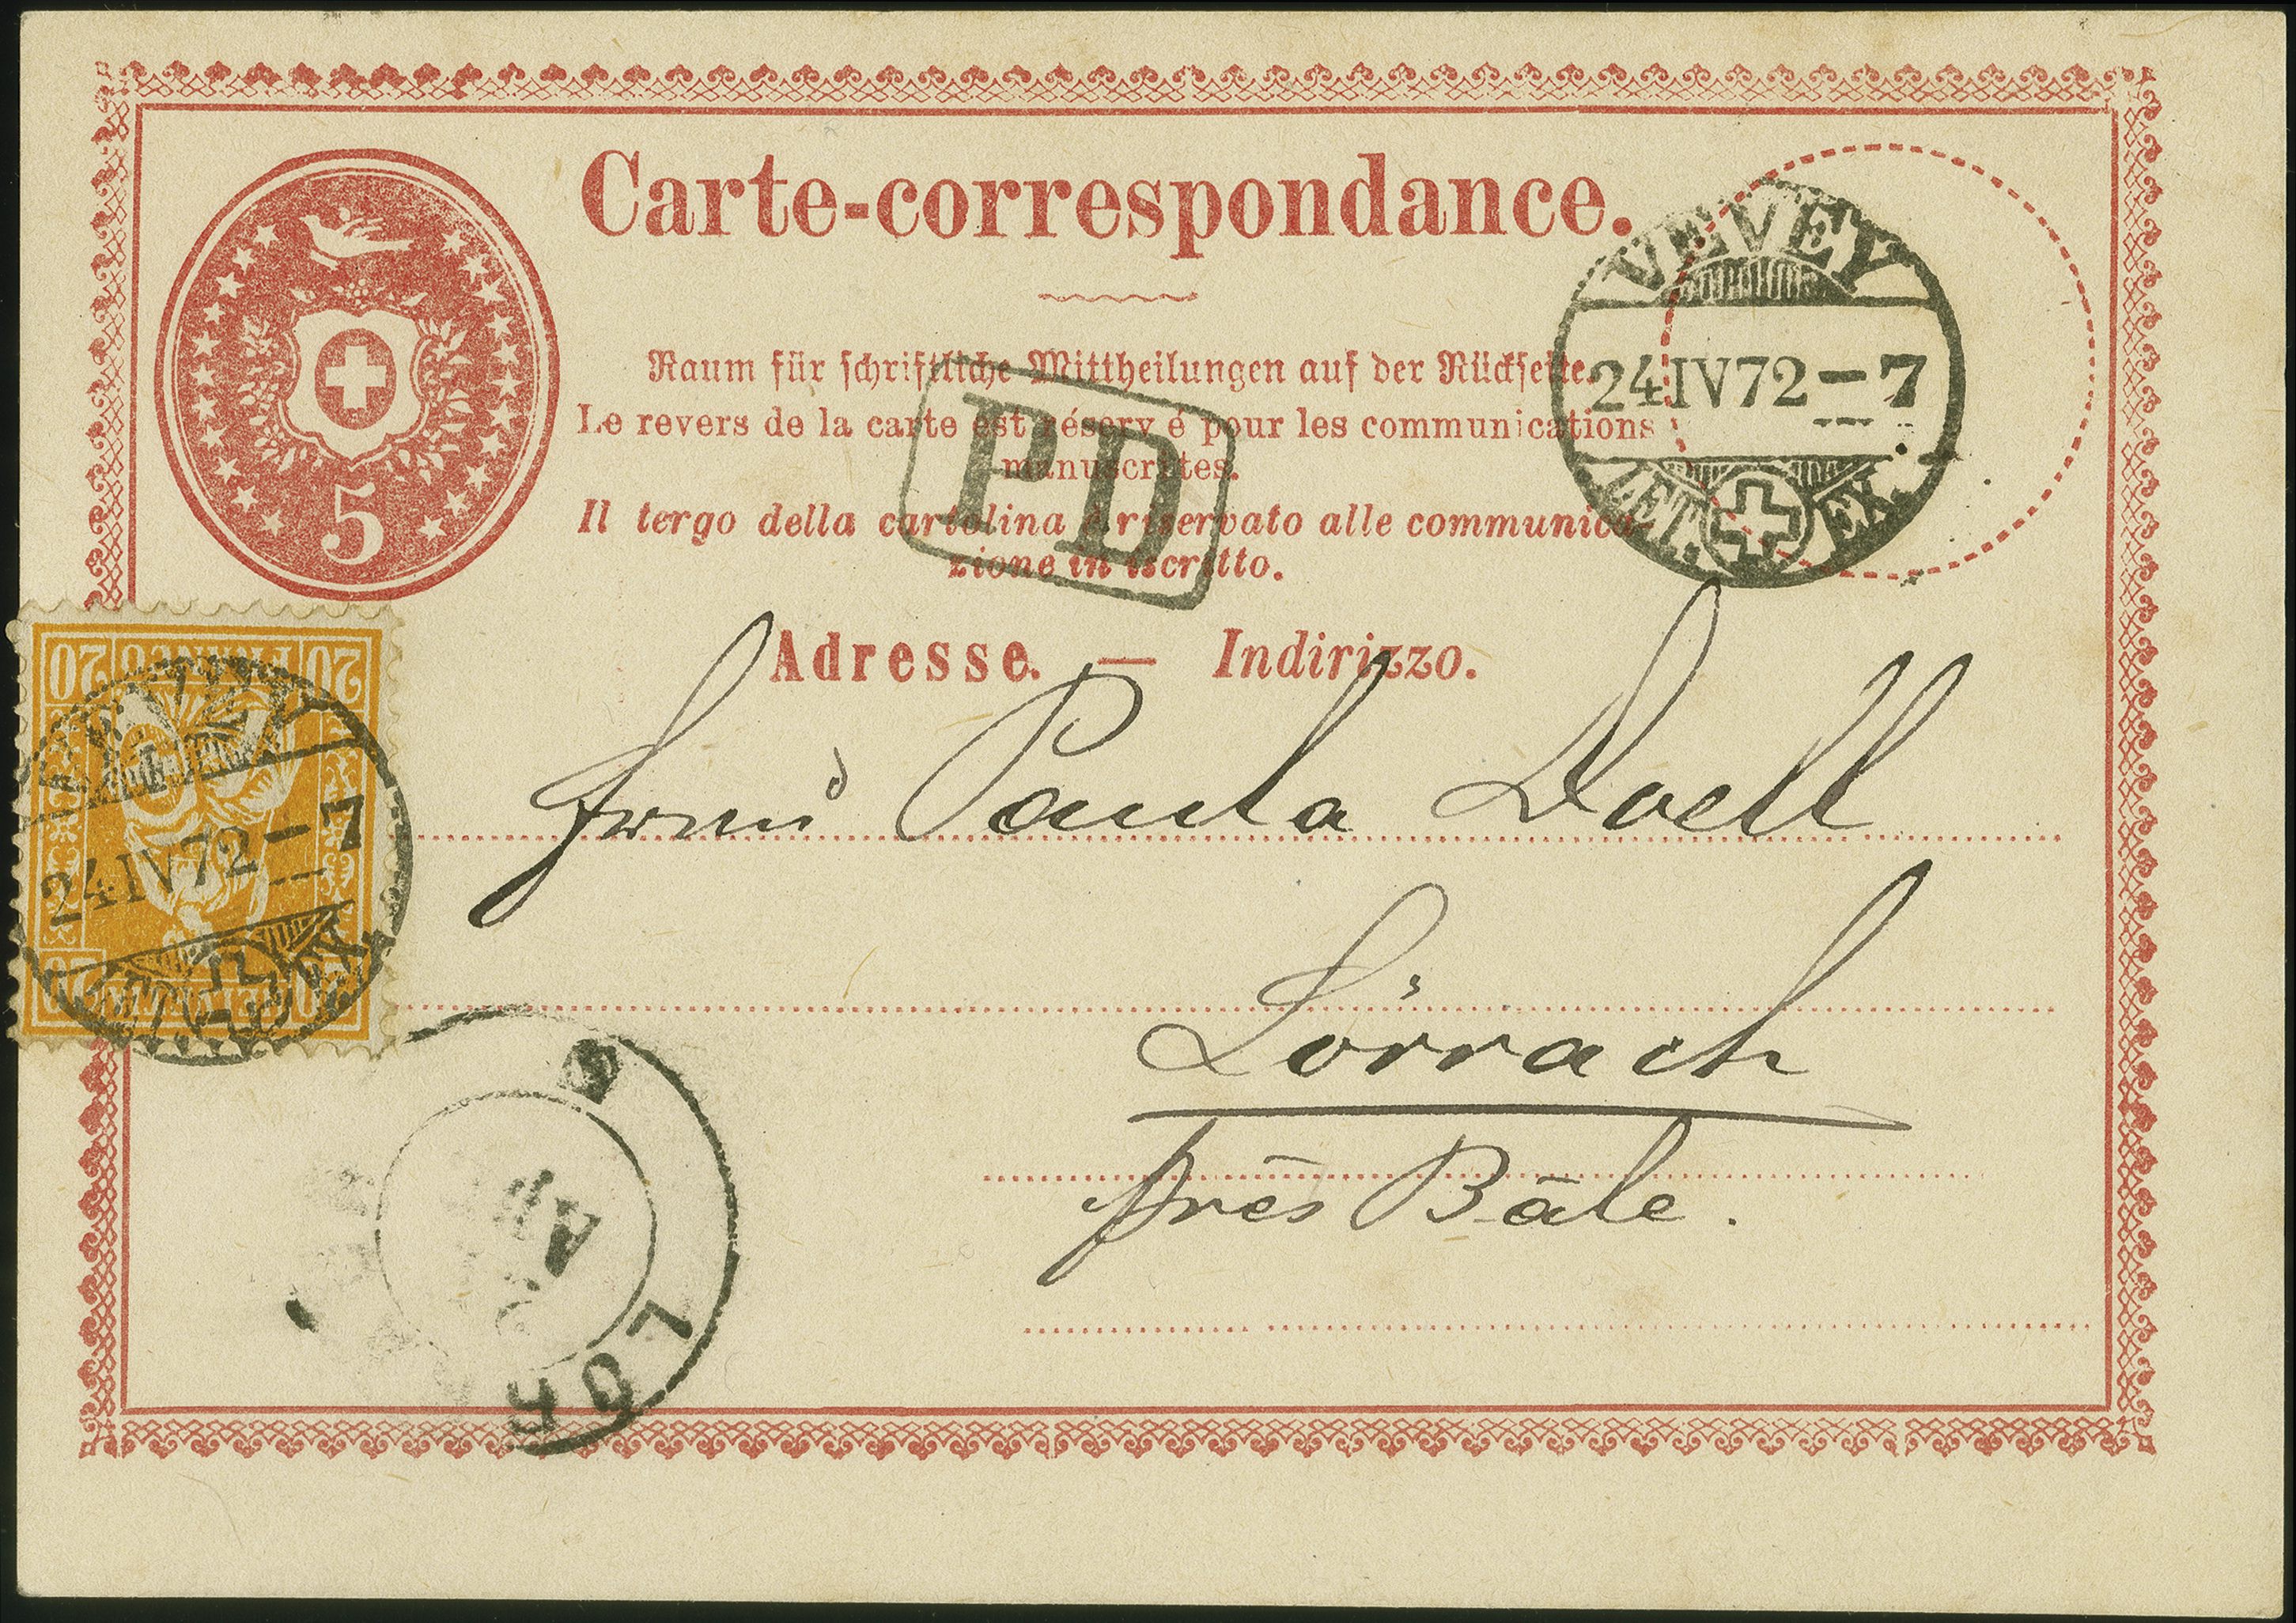 Carte-correspondance.
Raum für schriftliche Mittheilungen auf der Rückseite.
Le revers de la carte est réservé pour les communications
manuscrites.
Il tergo della cartolina è riservato alle communica-
zione in iscritto.
5
VEVEY
24 IV 72 – 7
LET. EX.
PD
Adresse. — Indirizzo.
Frau Paula Doell
Lörrach
près Bâle.
20 FRANCO 20
VEVEY
24 IV 72 – 7
EX.
20 HELVETIA 20
LÖR